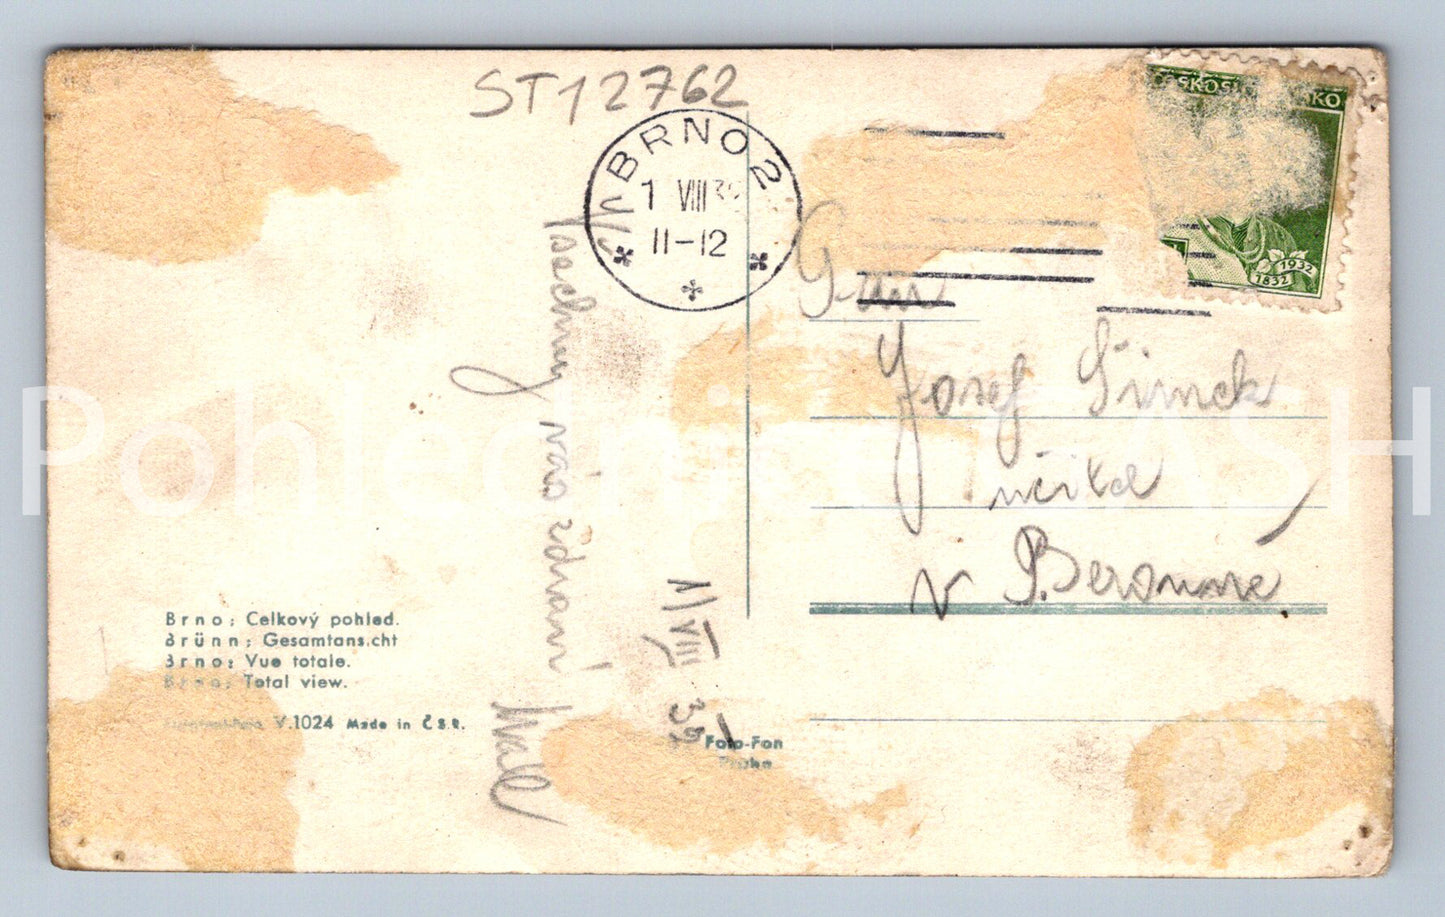 ST12762
BRNO 2
1 VIII 3
11-12
ČESKOSLOVENSKO
1932
1832
Josef Šimek
učitel
v P. Berouně
Všechny vás zdraví
1/VIII 32
Brno: Celkový pohled.
Brünn: Gesamtansicht
Brno: Vue totale.
Brno: Total view.
V.1024 Made in Č.S.R.
Foto-Fon
Praha
Pohlednice SASH